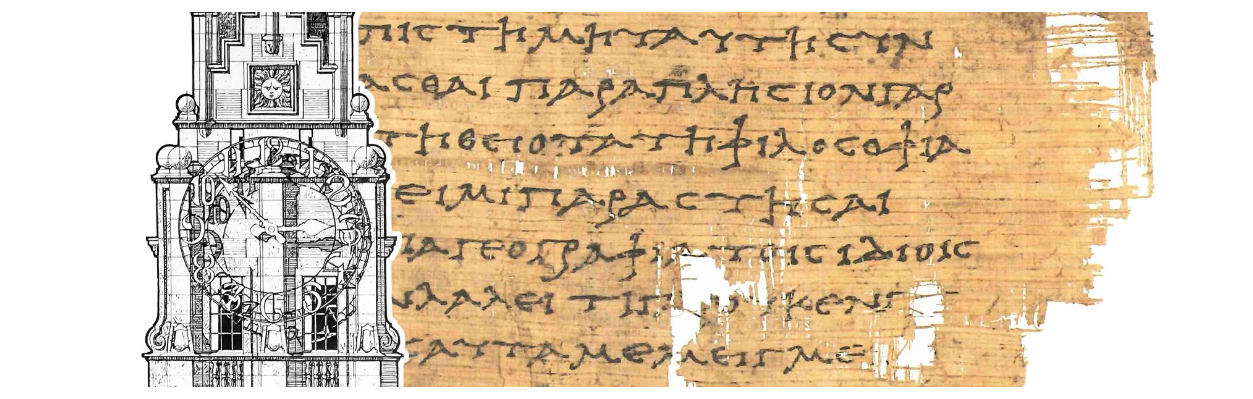 ΠΙϹΤΗΜΗΤΑΥΤΗϹΥΝ
ΑϹΘΑΙ ΠΑΡΑΠΛΗϹΙΟΝΓΑΡ
ΤΗΘΕΙΟΤΑΤΗΦΙΛΟϹΟΦΙΑ
ΕΙΜΙΠΑΡΑϹΤΗϹΑΙ
ΙΑΓΕΟΓΡΑΦΙΑ ΤΟΙϹ ΙΔΙΟΙϹ
ΛΑΛΕΙ
ΤΑΥΤΑΜΕΜΕΙΓΜΕ